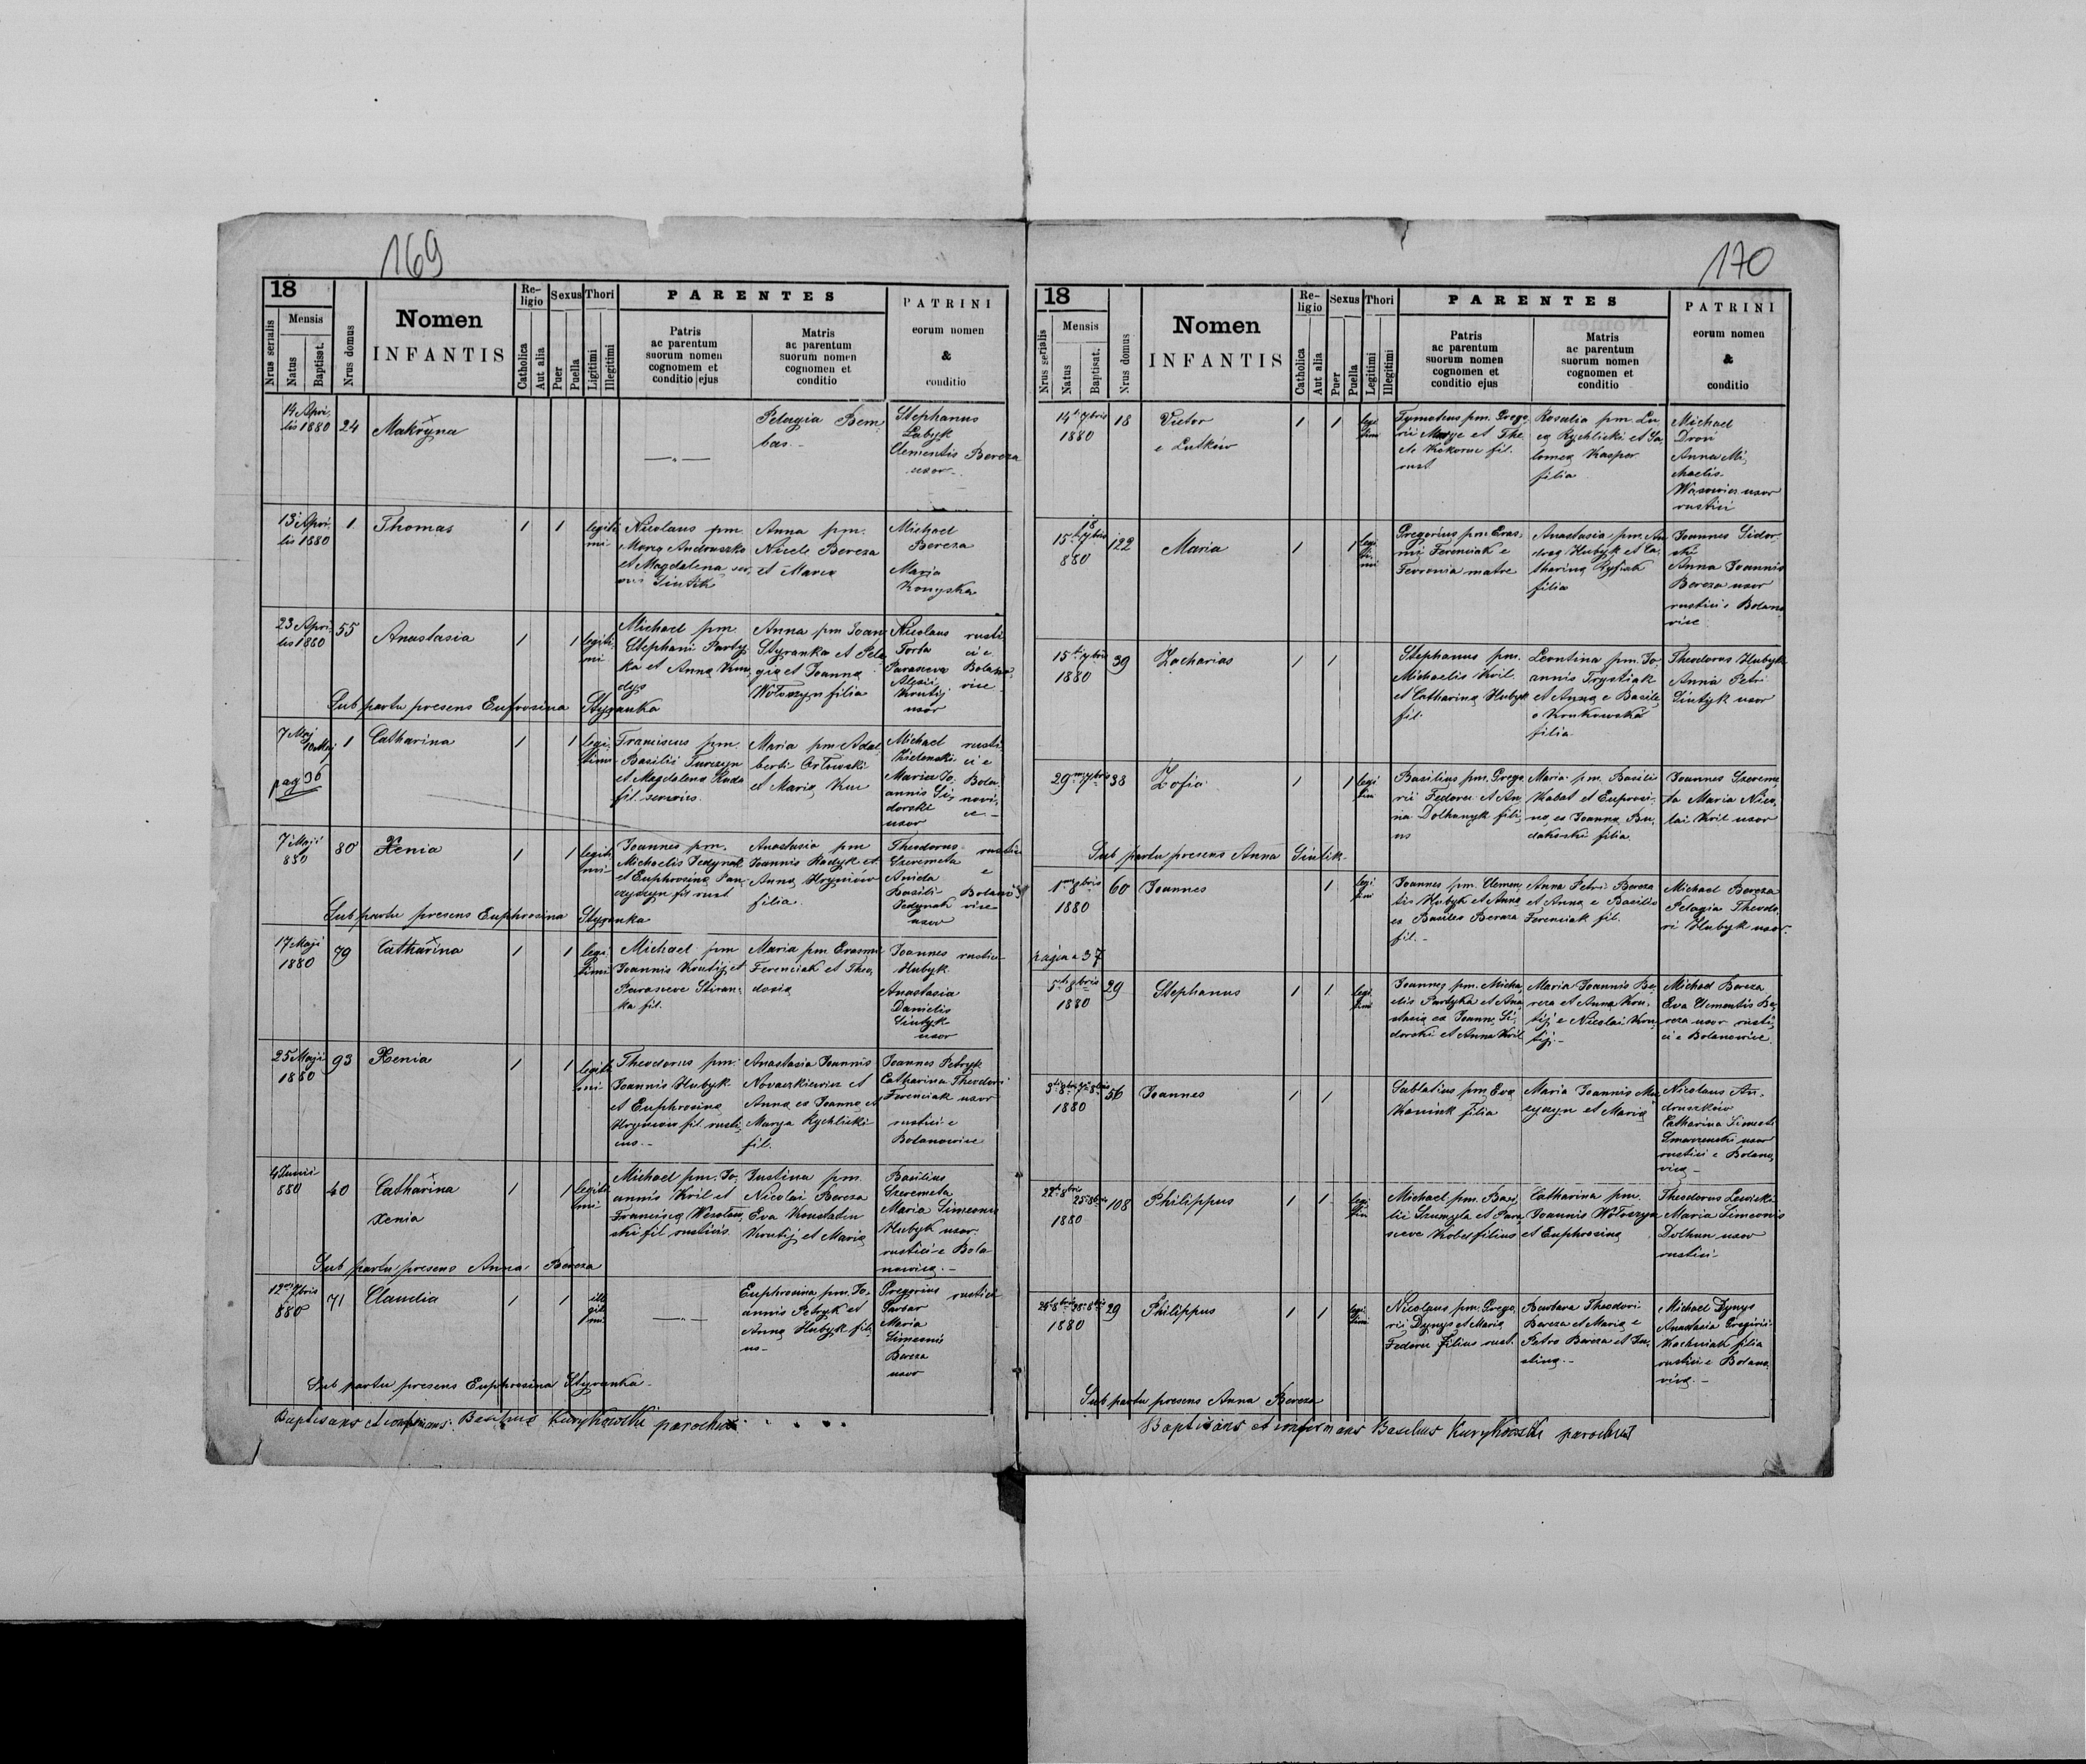 169
18
Nrus serialis
Mensis
Natus
Baptisat.
Nrus domus
Nomen
INFANTIS
Re-
ligio
Catholica
Aut alia
Sexus
Puer
Puella
Thori
Ligitimi
Illegitimi
PARENTES
Patris
ac parentum
suorum nomen
cognomem et
conditio ejus
Matris
ac parentum
suorum nomen
cognomen et
conditio
PATRINI
eorum nomen
&
conditio
14 Apri
lis 1880
24
Makryna
Pelagia Bem
bas.
Stephanus
Labyk
Clementis Bereza
uxor
13 Apri
lis 1880
1
Thomas
1
1
legiti
mi
Nicolaus pm.
Marcą Andruszko
et Magdalena
Anna pm.
Bereza
et Marcą
Michael
Bereza
Maria
Konyska
23 Apri
lis 1880
55
Anastasia
1
1
legiti
mi
Michael pm.
Stephani Party
ka et Anną
Anna pm Joan
Styranka et Pela
gią et Joanną
Wołoszyn filia
Nicolaus
Torba
Parasceva
Alexii
Krutij
uxor
rusti
ci e
Bolano
vice
Sub partu presens Eufrosina Styranka
7 Maj
10 Maj
pag 36
1
Catharina
1
1
legi
timi
Franciscus pm.
Basilii Turczyn
et Magdalena Ruda
fil.
Maria pm Adal
berti Orłowski
et Marią
Michael
Zielenski
Maria Jo
annis Si
dorski
uxor
rusti
ci e
Bola
novi
ce
7 Maji
880
80
Xenia
1
1
legiti
mi
Joannes pm.
Michaelis Fedynak
et Euphrosiną Pan
czyszyn fil rust
Anastasia pm
Joannis Hadyk et
Anną Hryniów
filia.
Theodorus
Szeremeta
Basili
Fedynak
uxor
rustici
e
Bolano
vice
Sub partu presens Euphrosina Styranka
17 Maji
1880
79
Catharina
1
1
legi
timi
Michael pm
Joannis Krutij et
Parasceve Stiran
ka fil.
Maria pm Erasmi
Ferenciak et Theo
dorią
Joannes rustici
Hubyk
Anastasia
Danielis
Giutyk
uxor
25 Maji
1880
93
Xenia
1
1
legiti
mi
Theodorus pm.
Joannis Hubyk
et Euphrosiną
Hryniów fil. rusti
cus.-
Anastasia Joannis
Novaczkiewicz et
Anną ex Joanną et
Marya Rychlicki
fil.
Joannes Petryk
Catharina Theodori
Ferenciak uxor
rustici e
Bolanowice
4 Junii
880
40
Catharina
Xenia
1
1
legiti
mi
Michael pm. Jo
annis Kril et
Franciscą Wesołow
ski fil rusticis.
Justina pm.
Nicolai Bereza
Eva Konstatin
Krutij et Marią
Basilius
Szeremeta
Maria Simeonis
Hubyk uxor
rustici e Bola
nowice.-
Sub partu presens Anna Bereza
12 7bris
880
71
Claudia
1
1
ille
giti
mi
Euphrosina pm. Jo
annis Petryk et
Anną Hubyk fili
us-
Gregorius rustici
Garbar
Maria
Simeonis
Bereza
uxor
Sub partu presens Euphrosina Styranka
Baptisans et confirmans: Basilius Kurykowski parochus
170
18
Nrus serialis
Mensis
Natus
Baptisat.
Nrus domus
Nomen
INFANTIS
Re-
ligio
Catholica
Aut alia
Sexus
Puer
Puella
Thori
Legitimi
Illegitimi
PARENTES
Patris
ac parentum
suorum nomen
cognomen et
conditio ejus
Matris
ac parentum
suorum nomen
cognomen et
conditio
PATRINI
eorum nomen
&
conditio
14 7bris
1880
18
Victor
e Lutków
1
1
legi
timi
Tymoteus pm. Grego
rii et The
cle Kokorue fil.
rust
Rosalia pm. Lu
cą Rychlicki et Sa
lomeą Kasper
filia
Michael
Dron
Anna Mi
chaelis
Wasowicz uxor
rustici
18
15 7bris
880
122
Maria
1
1
legi
ti
mi
Gregorius pm. Eras
mi Ferenciak e
Fevronia matre
Anastasia pm. An
dreą Hubyk et Ca
tharina
filia
Joannes Sidor
ski
Anna Joannis
Bereza uxor
rustici Bolano
vice
15 7bris
1880
39
Zacharias
1
1
Stephanus pm.
Michaelis Kril
et Catharina Hubyk
fil.
Leontina pm. Jo
annis Trystiak
et Anną e Basili
o Krukowski
filia
Theodorus Hubyk
Anna Petri
Giutyk uxor
29 7bris
38
Zofia
1
1
legi
timi
Basilius pm. Grego
rii Fedorec et An
na Dolhanyk fili
us
Maria pm. Basili
Kabat et Euprosi
ną ex Joanną Bu
dahoski filia
Joannes Szereme
ta Maria Nico
lai Kril uxor
Sub partu presens Anna Giutik
1 8bris
1880
60
Joannes
1
legi
timi
Joannes pm. Clemen
tis Hubyk et Anną
ex Basileo Bereza
fil.-
Anna Petri Bereza
et Anną e Basilio
Ferenciak fil.
Michael Bereza
Pelagia Theodo
ri Hubyk uxor
pagina 37
5 8bris
1880
29
Stephanus
1
1
legi
timi
Joannes pm. Micha
elis Partyka et Ana
stasia ex Joanne Si
dorski et Anna Kril
Maria Joannis Be
reza et Anną Kru
tij e Nicolai Kru
tij.-
Michael Bereza
Eva Clementis Be
reza uxor rusti
ci e Bolanowice
3 8bris
7 8bris
1880
56
Joannes
1
1
Sablatius pm. Eva
Kanink filia
Maria Joannis Mu
cyczyn et Marią
Nicolaus An
druszków
Catharina Simeoni
uxor
rustici e Bolano
vice-
22 8bris
25 8bris
1880
108
Philippus
1
1
legi
tim
Michael pm. Basi
lii Szumyla et Para
sceve Kobel filius
Catharina pm.
Joannis Wołoszyn
et Euphrosiną
Theodorus Lewicki
Maria Simeonis
Dolhun uxor
rustici
8bris
8bris
1880
29
Philippus
1
1
legi
timi
Nicolaus pm. Grego
rii Dynys et Marią
Fedorec filius rust.
Barbara Theodori
Bereza et Marią e
Petro Bereza et Ju
stiną.-
Michael Dynys
Anastasia Gregorii
Kochniak filia
rustici e Bolano
vice.-
Sub partu presens Anna Bereza
Baptisans et confirmans Basilius Kurykowski parochus